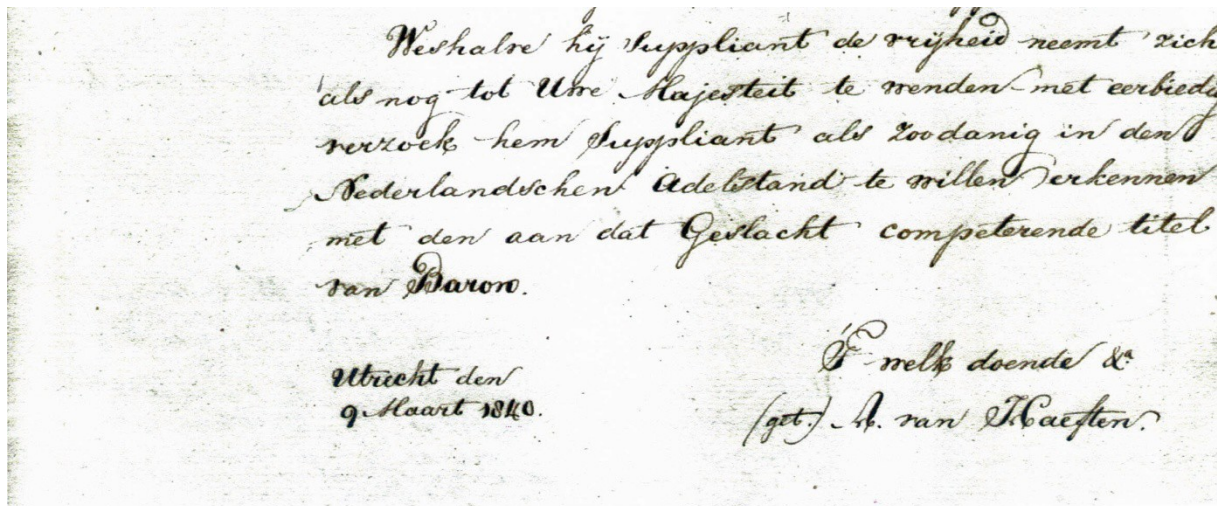 Weshalve hij Suppliant de vrijheid neemt zich
als nog tot Uwe Majesteit te wenden met eerbiedig
verzoek hem Suppliant als zoodanig in den
Nederlandschen Adelstand te willen erkennen
met den aan dat Geslacht competerende titel
van Baron.
'T welk doende &a
Utrecht den
9 Maart 1840.
(get.) A. van Haeften.